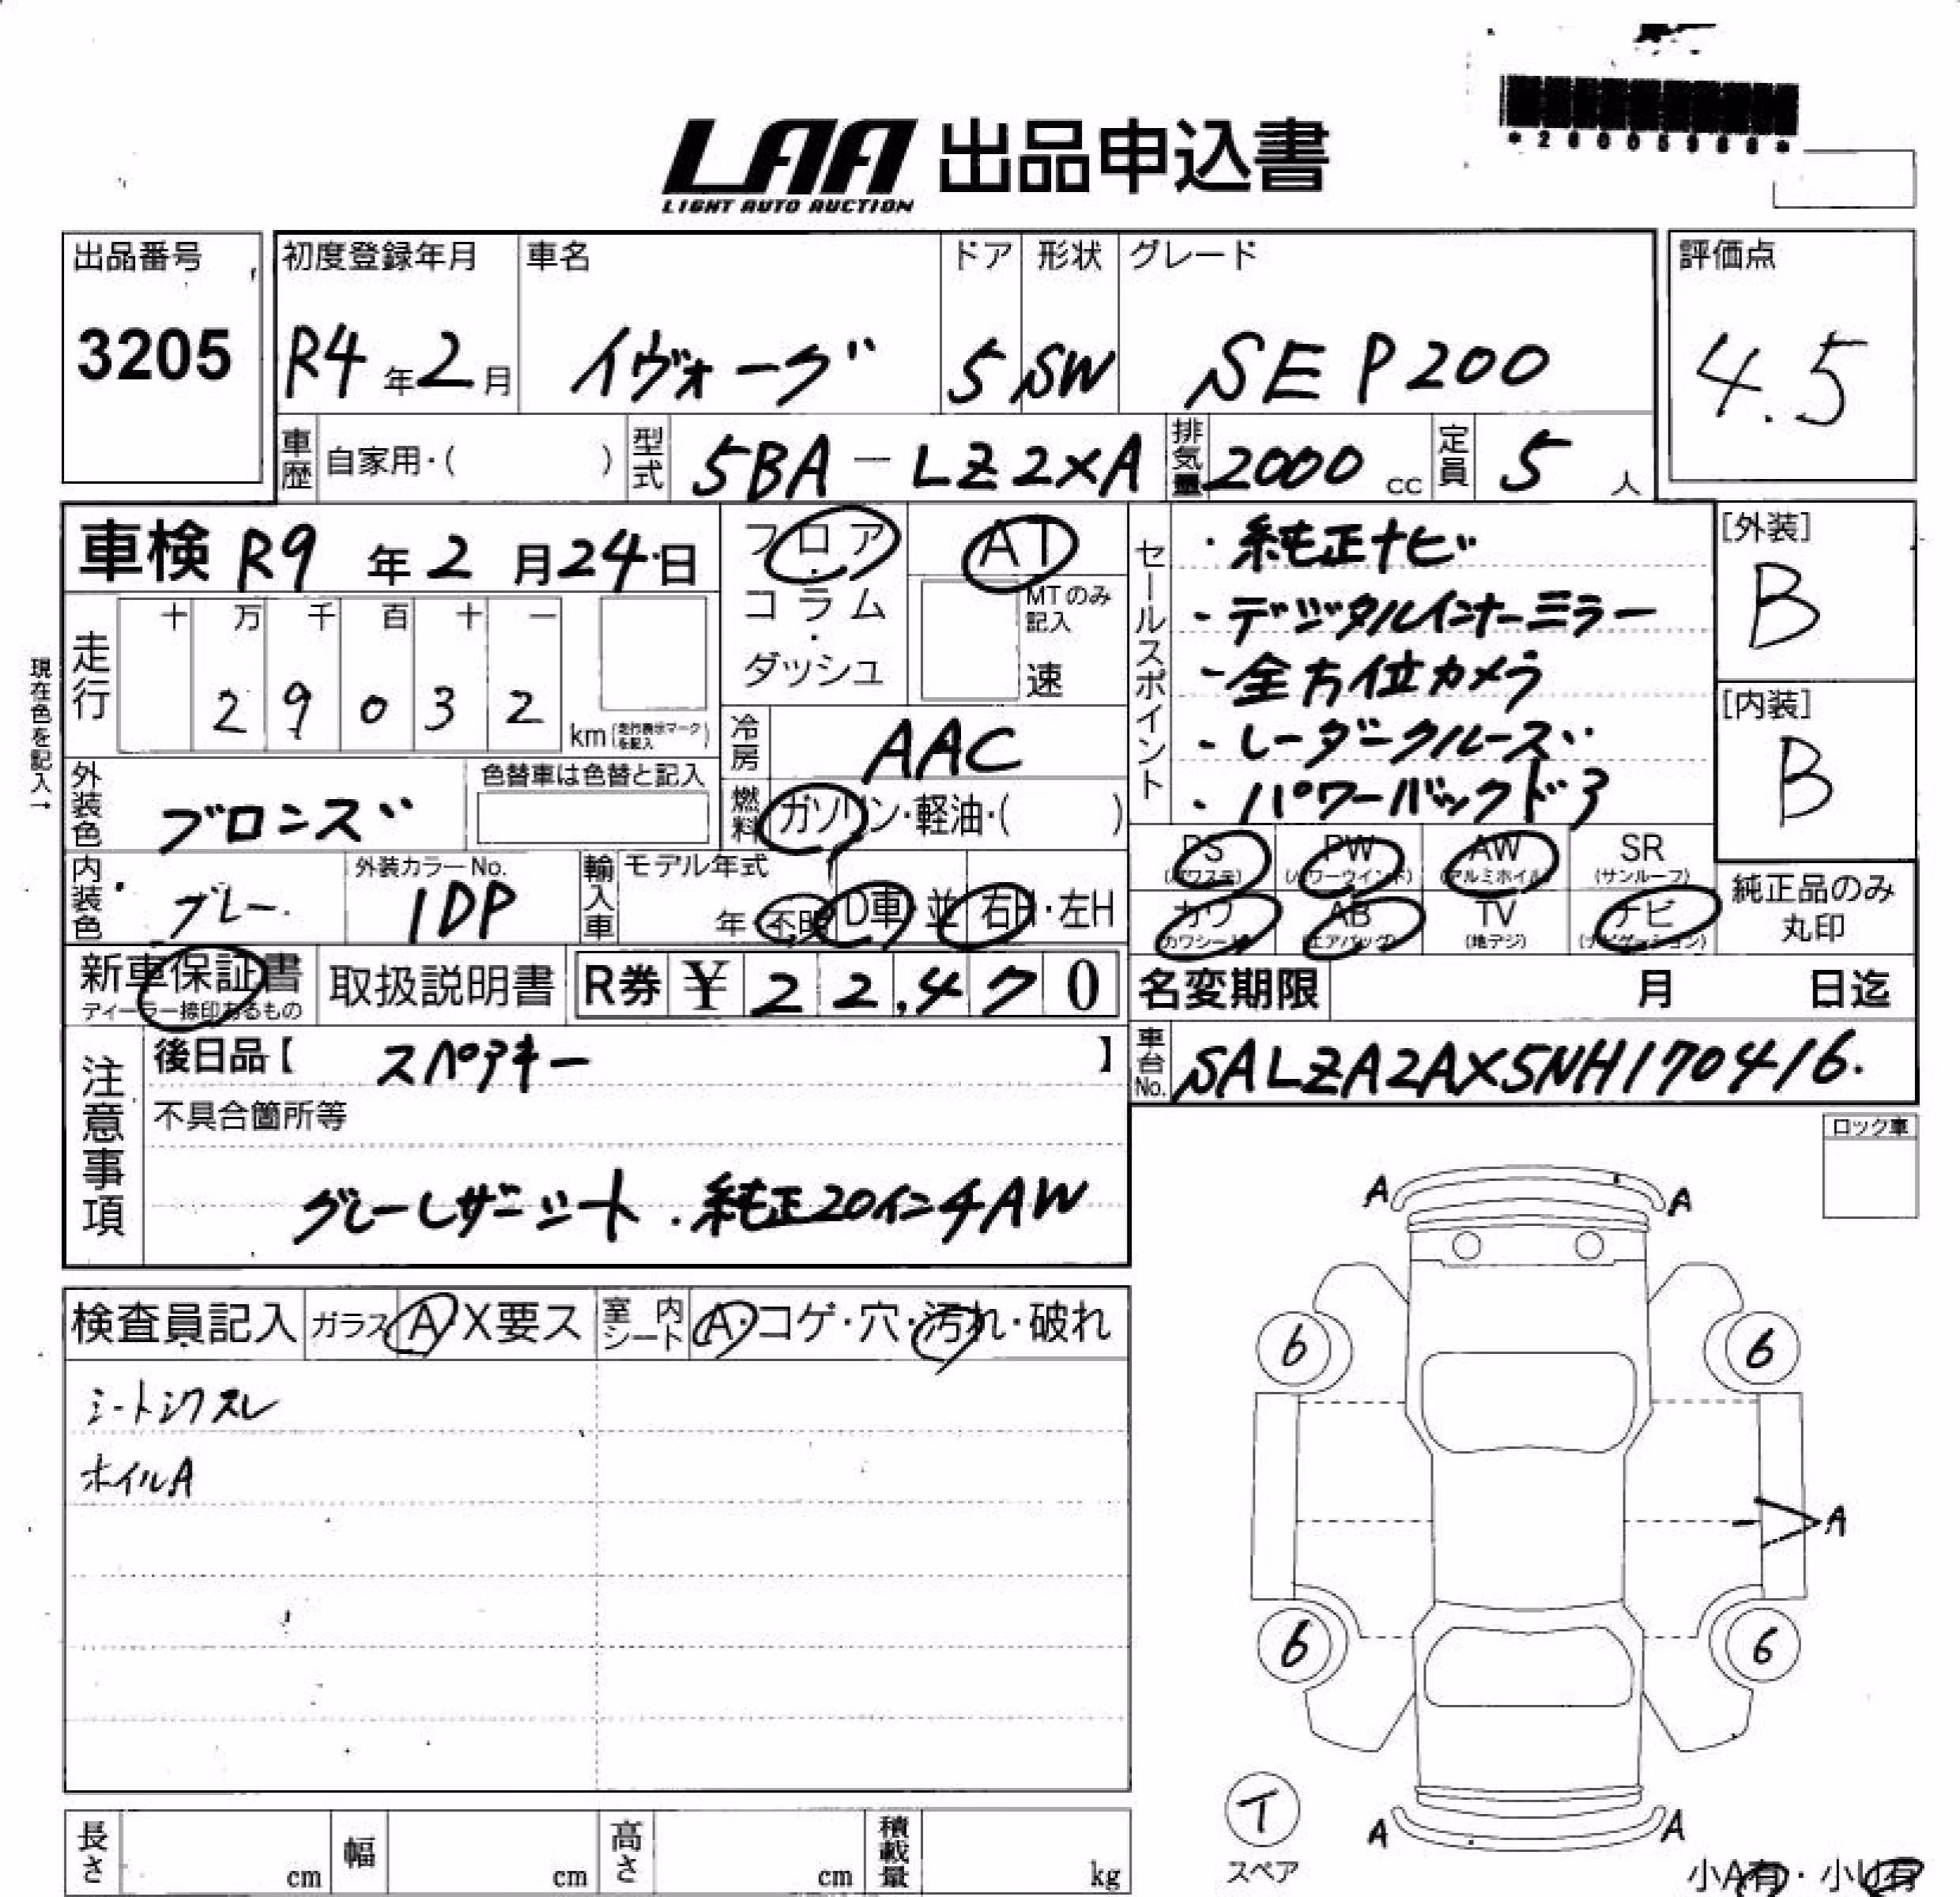 LAA 出品申込書
LIGHT AUTO AUCTION
出品番号
3205
初度登録年月 車名 ドア 形状 グレード
R4年2月 イヴォーグ 5 SW SE P200
評価点
4.5
車歴 自家用・( ) 型式 5BA-LZ2XA 排気量 2000 cc 定員 5 人
車検 R9年2月24日
フロア・コラム・ダッシュ
AT
MTのみ記入
速
セールスポイント
・純正ナビ
・デジタルインナーミラー
・全方位カメラ
・レーダークルーズ
・パワーバックドア
[外装]
B
[内装]
B
現在色を記入→
走行
十 万 千 百 十 一
2 9 0 3 2
km(走行表示マークを記入)
冷房 AAC
外装色 ブロンズ
色替車は色替と記入
燃料 ガソリン・軽油・( )
内装色 グレー
外装カラーNo.
1DP
輸入車 モデル年式
年 不明 D車・並 右H・左H
PS (パワステ) PW (パワーウインド) AW (アルミホイル) SR (サンルーフ)
カワ (カワシート) AB (エアバッグ) TV (地デジ) ナビ (ナビゲーション)
純正品のみ丸印
新車保証書
ディーラー捺印あるもの
取扱説明書
R券 ¥ 22,470
名変期限 月 日迄
注意事項
後日品【 スペアキー 】
車台No. SALZA2AX5NH170416.
不具合箇所等
グレーレザーシート.純正20インチAW
ロック車
検査員記入 ガラス A X要ス 室内シート A・コゲ・穴・汚れ・破れ
シートシワスレ
ホイルA
A A
6 6
A
6 6
イ
スペア
A A
小A有・小U有
長さ cm 幅 cm 高さ cm 積載量 kg